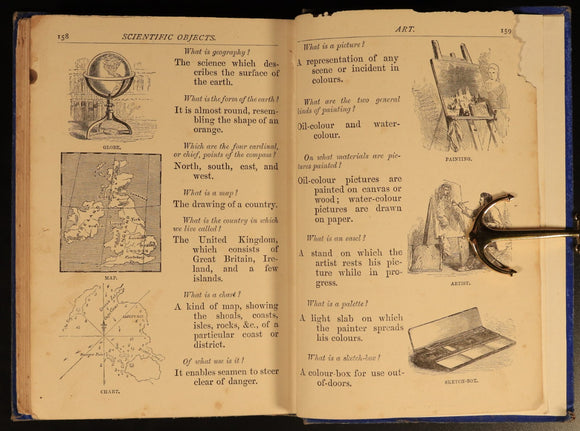 158
SCIENTIFIC OBJECTS.
What is geography?
The science which des-
cribes the surface of
the earth.
What is the form of the earth?
It is almost round, resem-
bling the shape of an
orange.
GLOBE.
Which are the four cardinal,
or chief, points of the compass?
North, south, east, and
west.
What is a map?
The drawing of a country.
What is the country in which
we live called?
The United Kingdom,
which consists of
Great Britain, Ire-
land, and a few
islands.
MAP.
What is a chart?
A kind of map, showing
the shoals, coasts,
isles, rocks, &c., of a
particular coast or
district.
Of what use is it?
It enables seamen to steer
clear of danger.
CHART.
ART.
159
What is a picture?
A representation of any
scene or incident in
colours.
What are the two general
kinds of painting?
Oil-colour and water-
colour.
PAINTING.
On what materials are pic-
tures painted?
Oil-colour pictures are
painted on canvas or
wood; water-colour
pictures are drawn
on paper.
What is an easel?
A stand on which the
artist rests his pic-
ture while in pro-
gress.
ARTIST.
What is a palette?
A light slab on which
the painter spreads
his colours.
What is a sketch-box?
A colour-box for use out-
of-doors.
SKETCH-BOX.